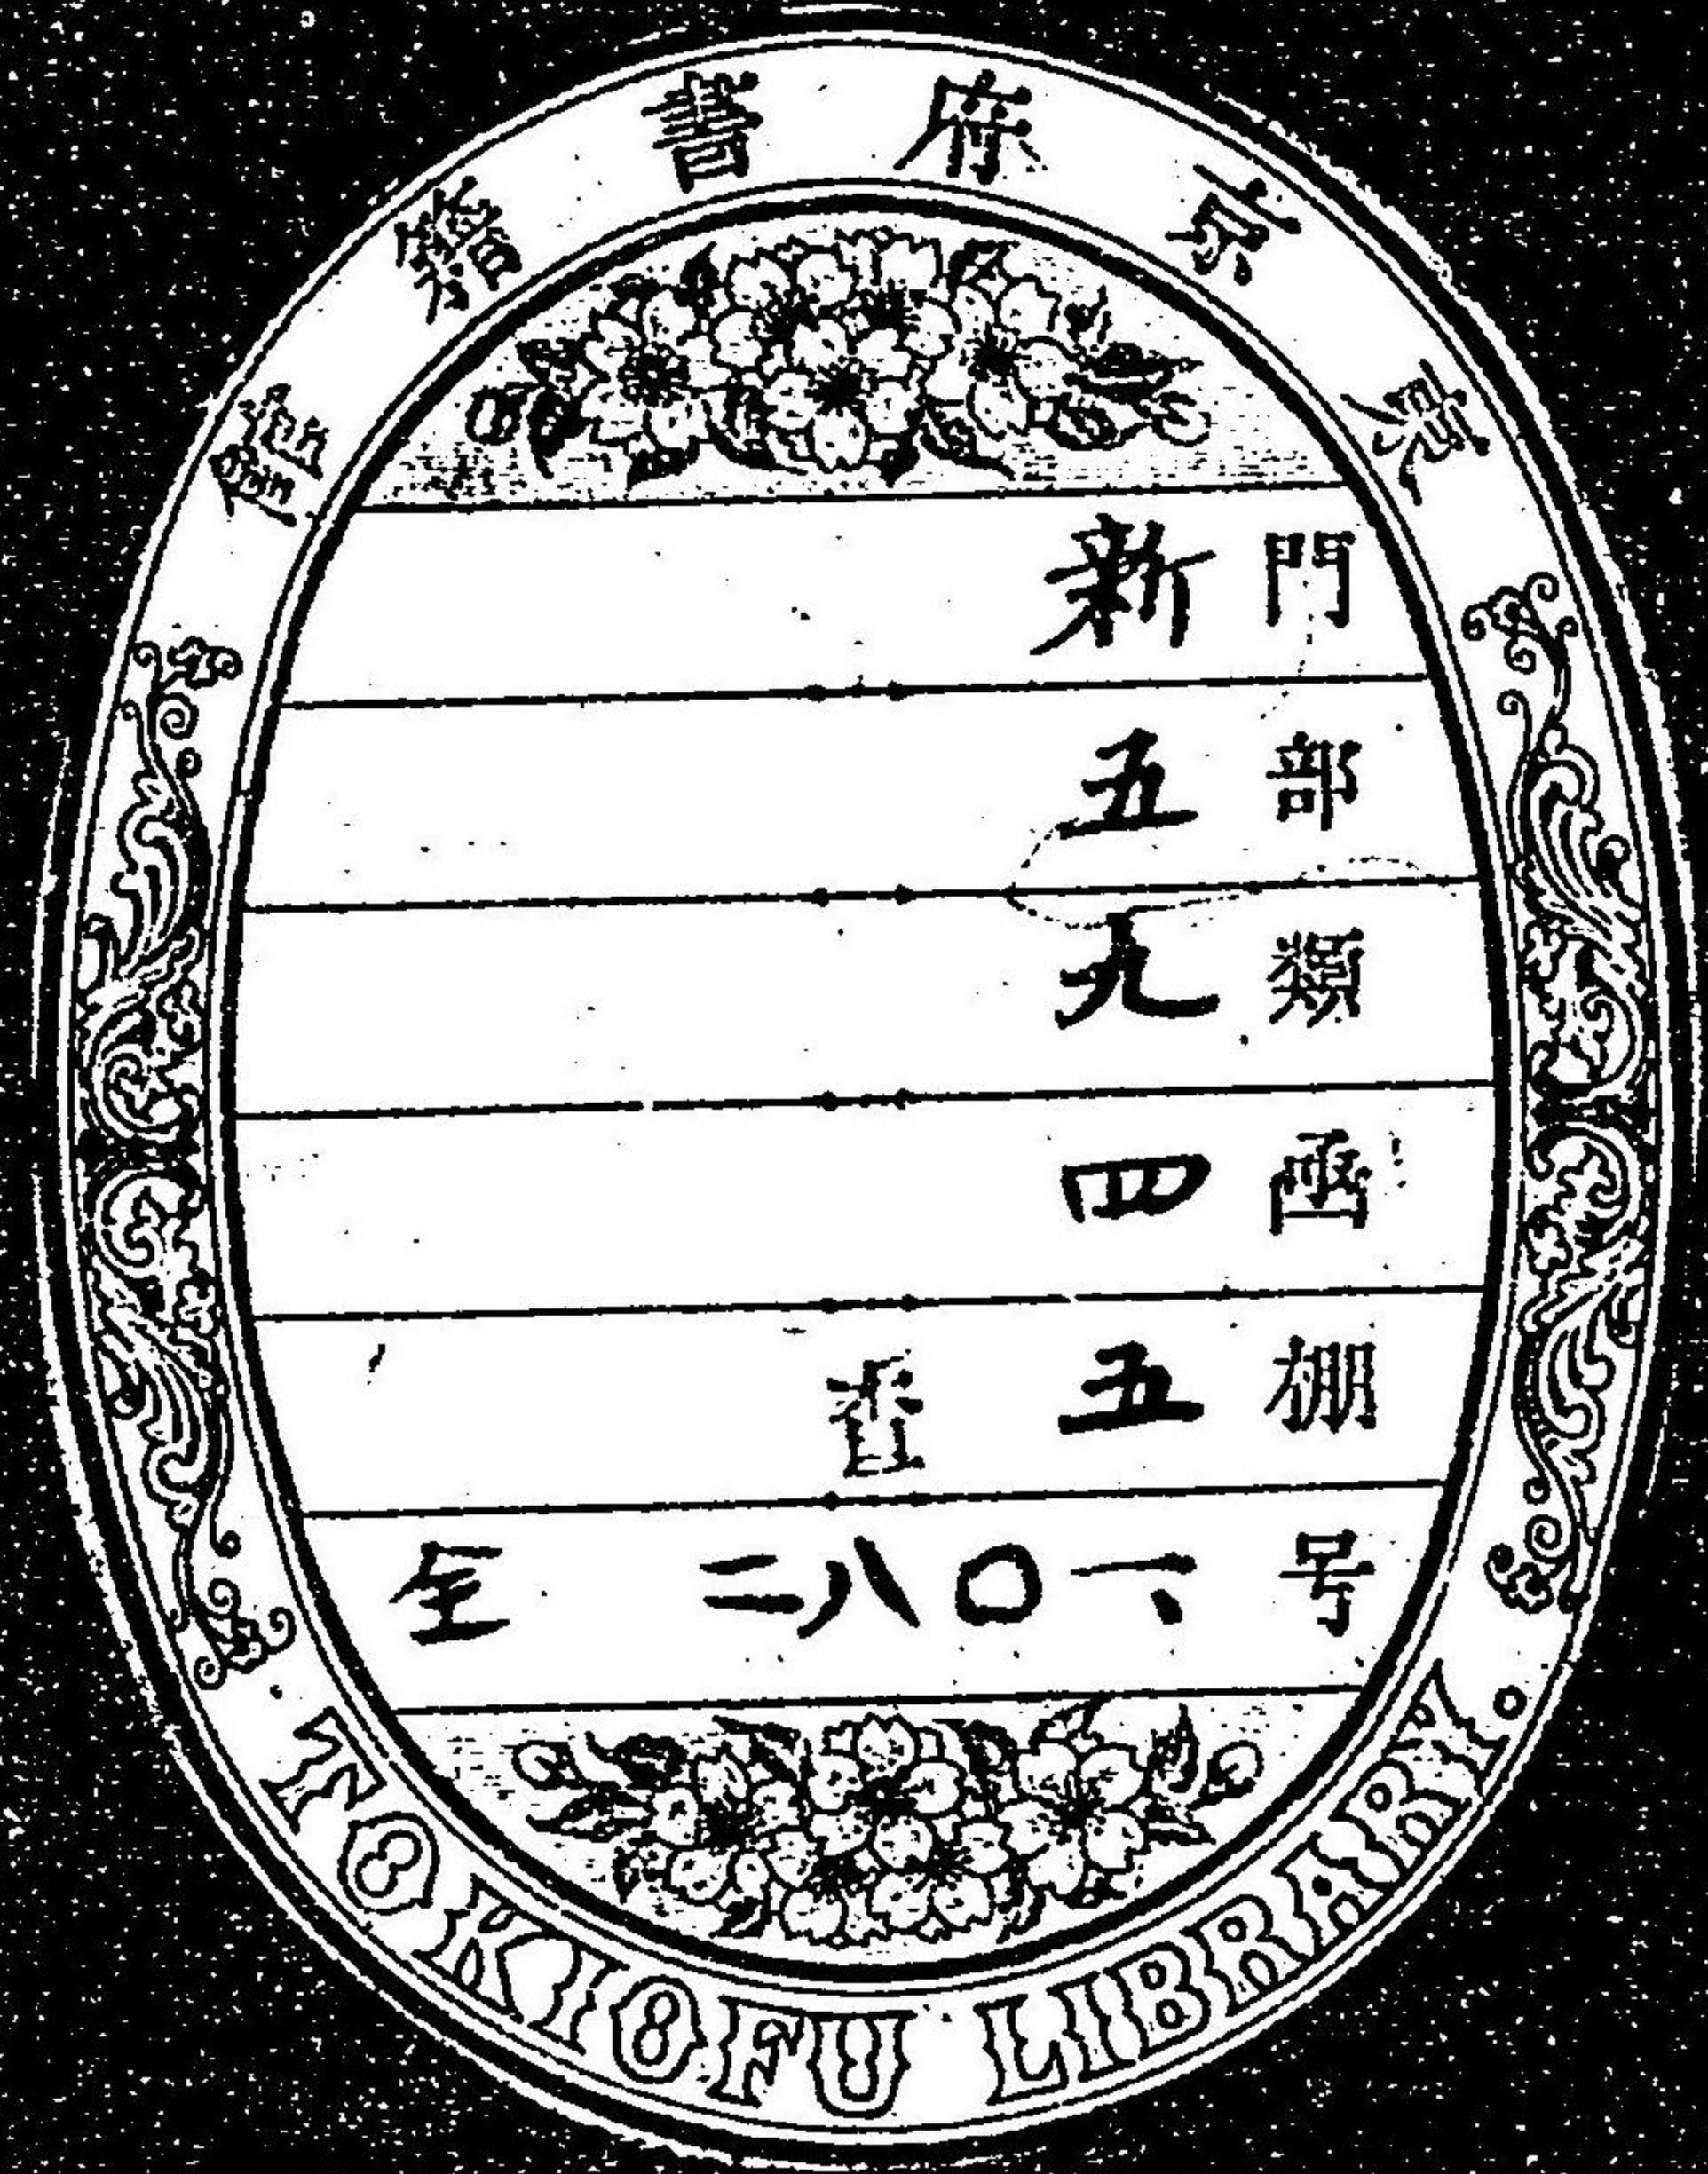 東京府書籍館
門 新
部 五
類 九
凾 四
棚 五
号 一、〇八二 全
TOKIOFU LIBRARY.